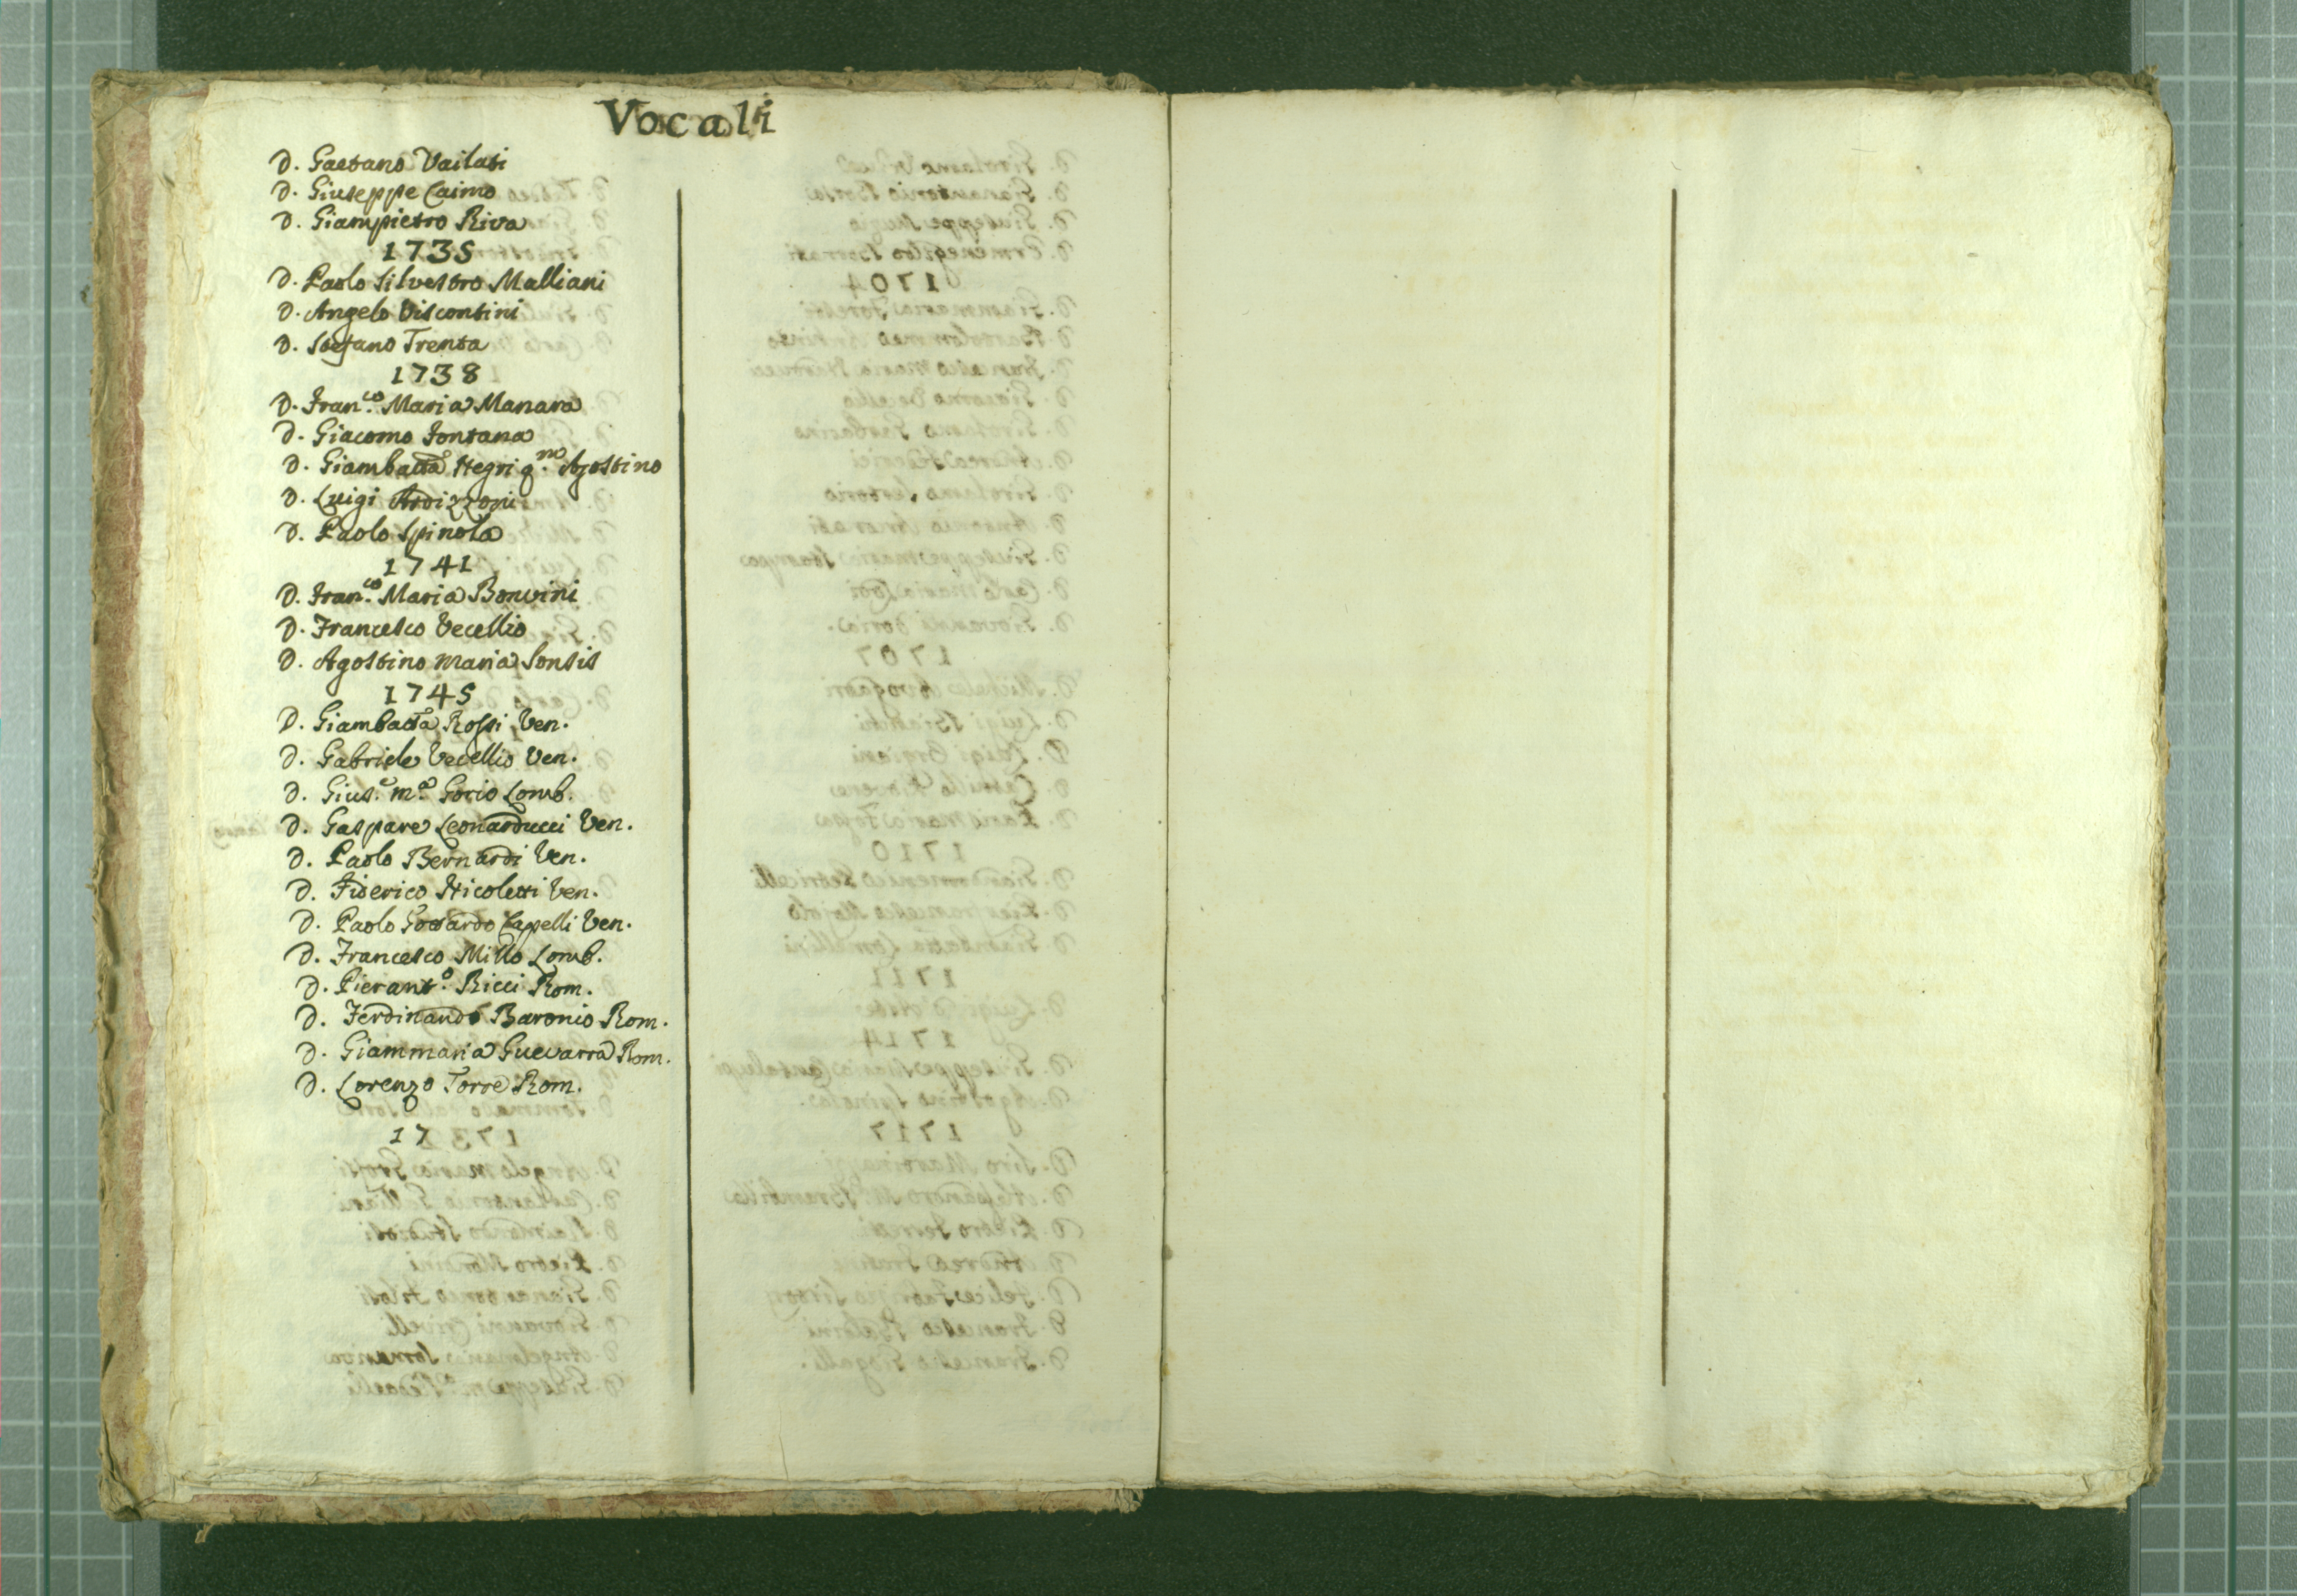 Vocali
D. Gaetano Vailati
D. Giuseppe Caimo
D. Giampietro Riva
1735
D. Paolo Silvestro Malliani
D. Angelo Viscontini
D. Stefano Trenta
1738
D. Fran.co Maria Manara
D. Giacomo Fontana
D. Giambatta Negri q.m Agostino
D. Luigi Ardizzoni
D. Paolo Spinola
1741
D. Fran.co Maria Bonvini
D. Francesco Vecellio
D. Agostino Maria Sonsis
1745
D. Giambatta Rossi Ven.
D. Gabriele Vecellio Ven.
D. Gius.e m.a Gorio Lomb.
D. Gaspare Leonarducci Ven.
D. Paolo Bernardi Ven.
D. Fiderico Nicoletti Ven.
D. Paolo Gottardo Capelli Ven.
D. Francesco Millo Lomb.
D. Pierant.o Ricci Rom.
D. Ferdinando Baronio Rom.
D. Giammaria Guevarra Rom.
D. Lorenzo Torre Rom.
17